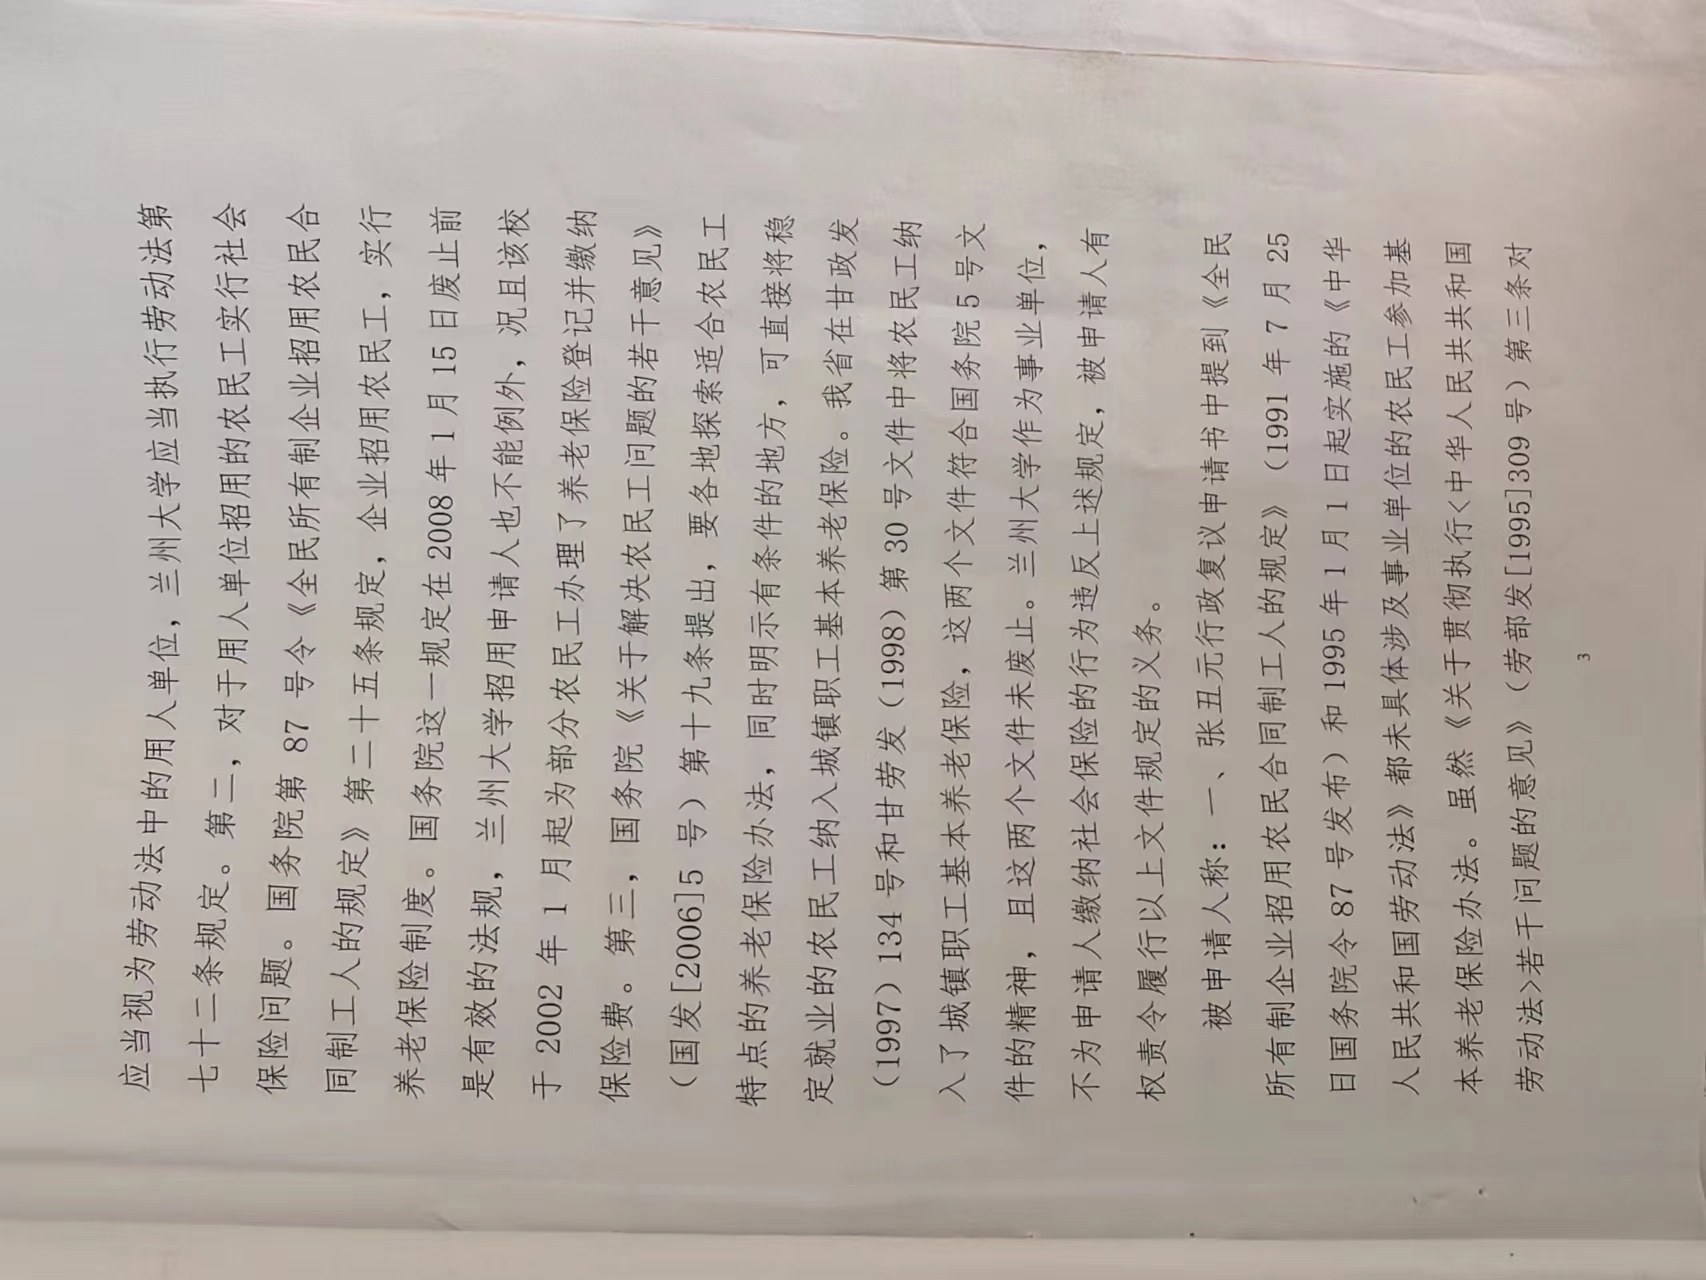 应当视为劳动法中的用人单位，兰州大学应当执行劳动法第
七十二条规定。第二，对于用人单位招用的农民工实行社会
保险问题。国务院第 87 号令《全民所有制企业招用农民合
同制工人的规定》第二十五条规定，企业招用农民工，实行
养老保险制度。国务院这一规定在 2008 年 1 月 15 日废止前
是有效的法规，兰州大学招用申请人也不能例外，况且该校
于 2002 年 1 月起为部分农民工办理了养老保险登记并缴纳
保险费。第三，国务院《关于解决农民工问题的若干意见》
（国发[2006]5 号）第十九条提出，要各地探索适合农民工
特点的养老保险办法，同时明示有条件的地方，可直接将稳
定就业的农民工纳入城镇职工基本养老保险。我省在甘政发
（1997）134 号和甘劳发（1998）第 30 号文件中将农民工纳
入了城镇职工基本养老保险，这两个文件符合国务院 5 号文
件的精神，且这两个文件未废止。兰州大学作为事业单位，
不为申请人缴纳社会保险的行为违反上述规定，被申请人有
权责令履行以上文件规定的义务。
被申请人称：一、张丑元行政复议申请书中提到《全民
所有制企业招用农民合同制工人的规定》（1991 年 7 月 25
日国务院令 87 号发布）和 1995 年 1 月 1 日起实施的《中华
人民共和国劳动法》都未具体涉及事业单位的农民工参加基
本养老保险办法。虽然《关于贯彻执行<中华人民共和国
劳动法>若干问题的意见》（劳部发[1995]309 号）第三条对
3